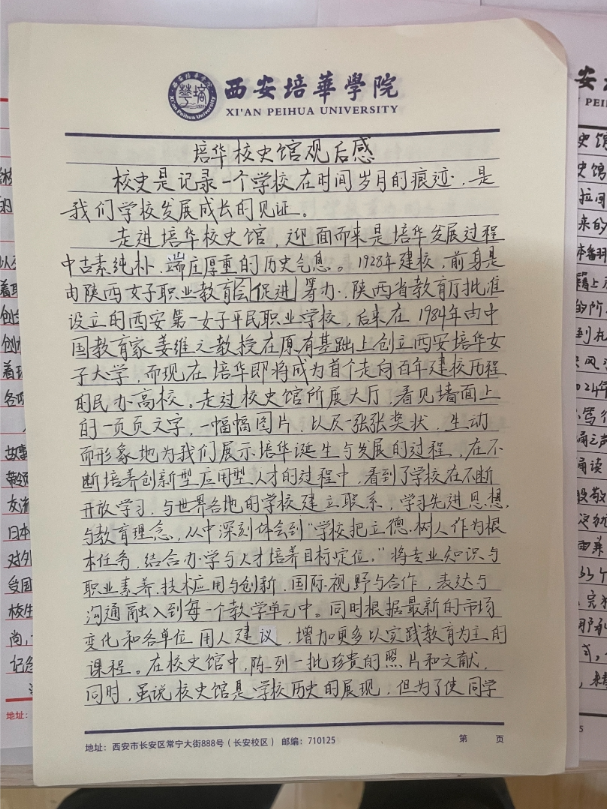 西安培華學院
XI'AN PEIHUA UNIVERSITY
培华校史馆观后感
校史是记录一个学校在时间岁月的痕迹,是
我们学校发展成长的见证。
走进培华校史馆,迎面而来是培华发展过程
中古素纯朴、端庄厚重的历史气息。1928年建校,前身是
由陕西女子职业教育会促进筹办,陕西省教育厅批准
设立的西安第一女子平民职业学校,后来在1984年由中
国教育家姜维之教授在原有基础上创立西安培华女
子大学,而现在培华即将成为首个走向百年建校历程
的民办高校。走过校史馆所展大厅,看见墙面上
的一页页文字,一幅幅图片,以及一张张奖状,生动
而形象地为我们展示培华诞生与发展的过程,在不
断培养创新型应用型人才的过程中,看到了学校在不断
开放学习,与世界各地的学校建立联系,学习先进思想
与教育理念,从中深刻体会到“学校把立德树人作为根
本任务,结合办学与人才培养目标定位。”将专业知识与
职业素养、技术应用与创新、国际视野与合作、表达与
沟通融入到每一个教学单元中。同时根据最新的市场
变化和各单位用人建议,增加更多以实践教育为主的
课程。在校史馆中,陈列一批珍贵的照片和文献,
同时,虽说校史馆是学校历史的展现,但为了使同学
地址:西安市长安区常宁大街888号(长安校区) 邮编:710125
第 页